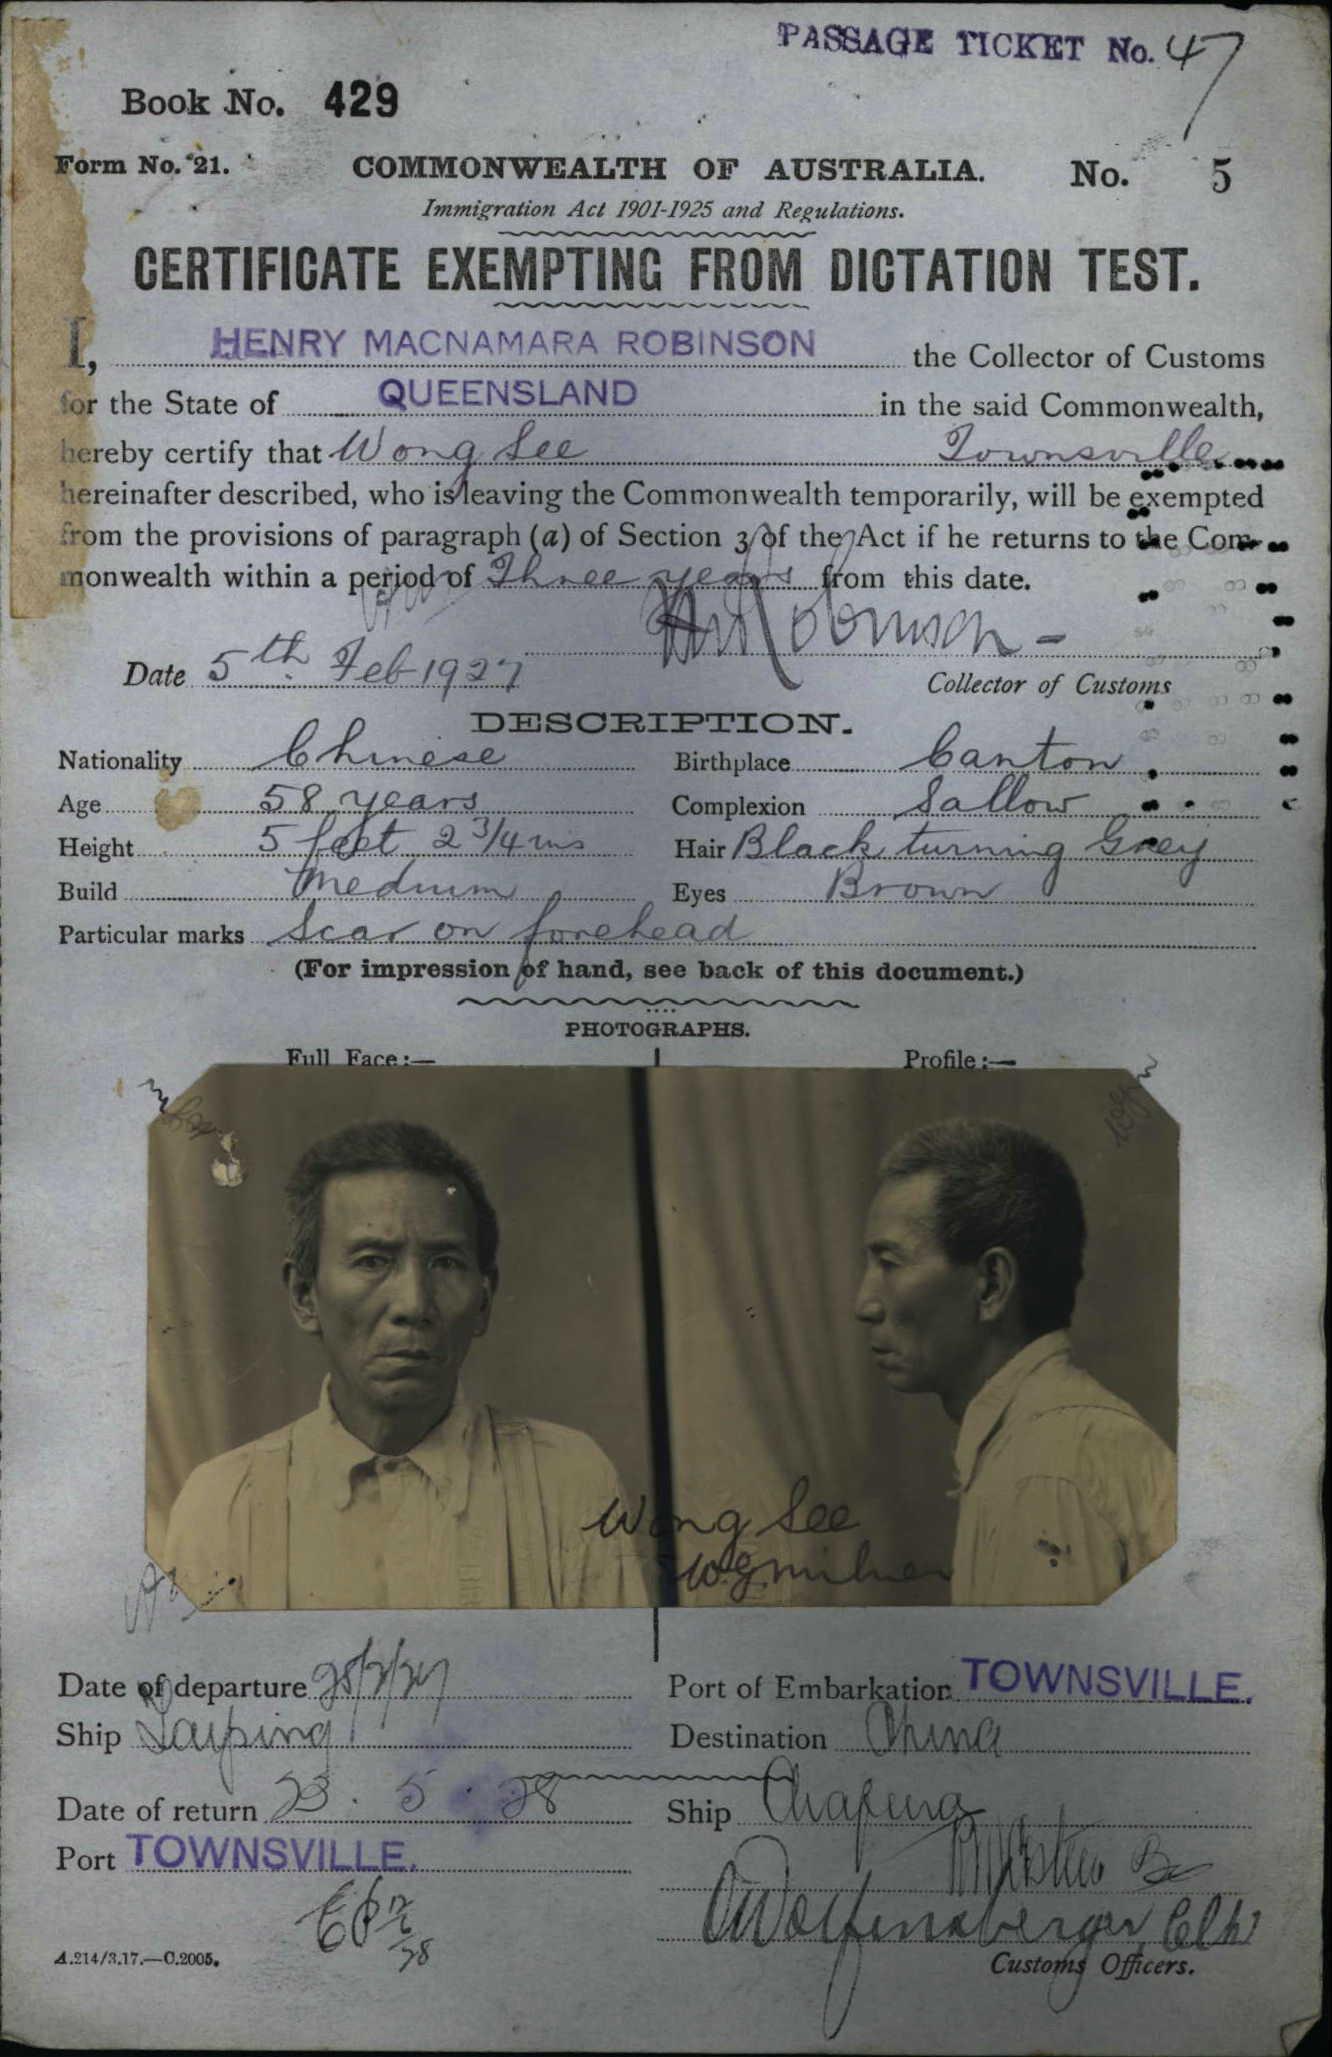 PASSAGE TICKET No. 47
Book No. 429
Form No. 21. COMMONWEALTH OF AUSTRALIA. No. 5
Immigration Act 1901-1925 and Regulations.
CERTIFICATE EXEMPTING FROM DICTATION TEST.
I, HENRY MACNAMARA ROBINSON the Collector of Customs
for the State of QUEENSLAND in the said Commonwealth,
hereby certify that Wong See Townsville
hereinafter described, who is leaving the Commonwealth temporarily, will be exempted
from the provisions of paragraph (a) of Section 3 of the Act if he returns to the Com-
monwealth within a period of Three years from this date.
HM Robinson
Date 5th Feb 1927 Collector of Customs
DESCRIPTION.
Nationality Chinese Birthplace Canton
Age 58 years Complexion Sallow
Height 5 feet 2 3/4 ins Hair Black turning Grey
Build Medium Eyes Brown
Particular marks Scar on forehead
(For impression of hand, see back of this document.)
PHOTOGRAPHS.
Full Face:— Profile:—
Wong See
W.G. Milner
Date of departure 28/2/27 Port of Embarkation TOWNSVILLE.
Ship Taiping Destination China
Date of return 23. 5. 28 Ship
Port TOWNSVILLE.
A.214/3.17.—C.2005. Customs Officers.